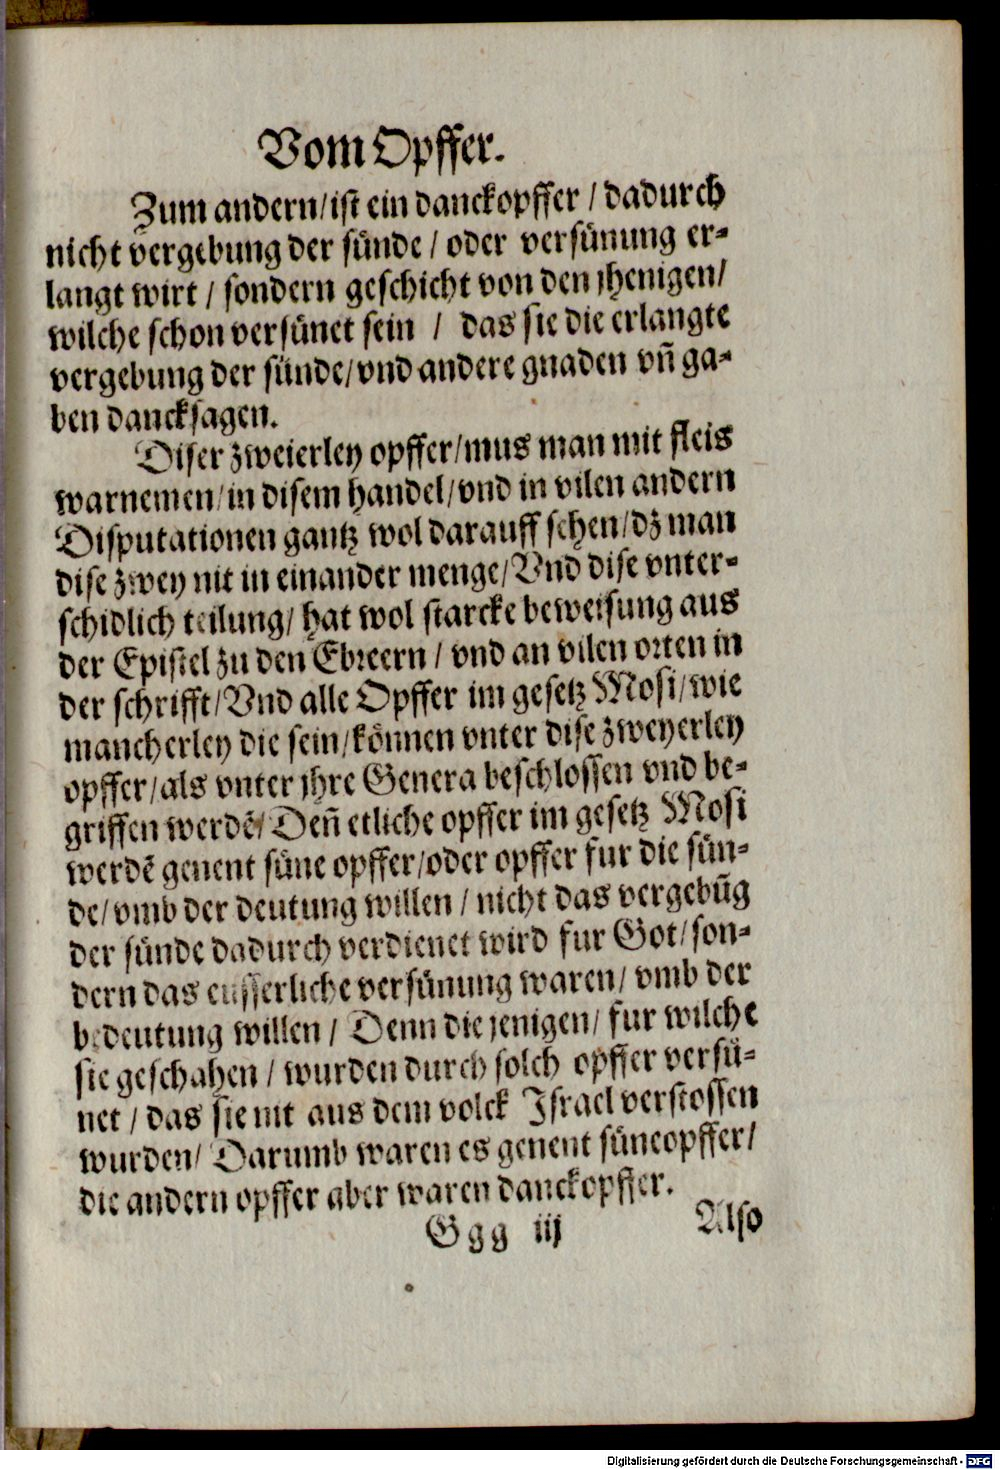 Vom Opffer.
Zum andern/ist ein danckopffer / dadurch
nicht vergebung der sünde / oder versünung er-
langt wirt / sondern geschicht von den jhenigen/
wilche schon versünet sein / das sie die erlangte
vergebung der sünde/vnd andere gnaden vñ ga-
ben dancksagen.
Diser zweierley opffer/mus man mit fleis
warnemen/in disem handel/vnd in vilen andern
Disputationen gantz wol darauff sehen/dz man
dise zwey nit in einander menge/Vnd dise vnter-
schidlich teilung/ hat wol starcke beweisung aus
der Epistel zu den Ebreern / vnd an vilen orten in
der schrifft/Vnd alle Opffer im gesetz Mosi/wie
mancherley die sein/können vnter dise zweyerley
opffer/als vnter jhre Genera beschlossen vnd be-
griffen werdē/Deñ etliche opffer im gesetz Mosi
werdē genent süne opffer/oder opffer fur die sün-
de/vmb der deutung willen / nicht das vergebūg
der sünde dadurch verdienet wird fur Got/son-
dern das eusserliche versünung waren/ vmb der
bedeutung willen / Denn die jenigen/ fur wilche
sie geschahen / wurden durch solch opffer versü-
net / das sie nit aus dem volck Israel verstossen
wurden/ Darumb waren es genent süneopffer/
die andern opffer aber waren danckopffer.
Ggg iij Also
Digitalisierung gefördert durch die Deutsche Forschungsgemeinschaft - DFG